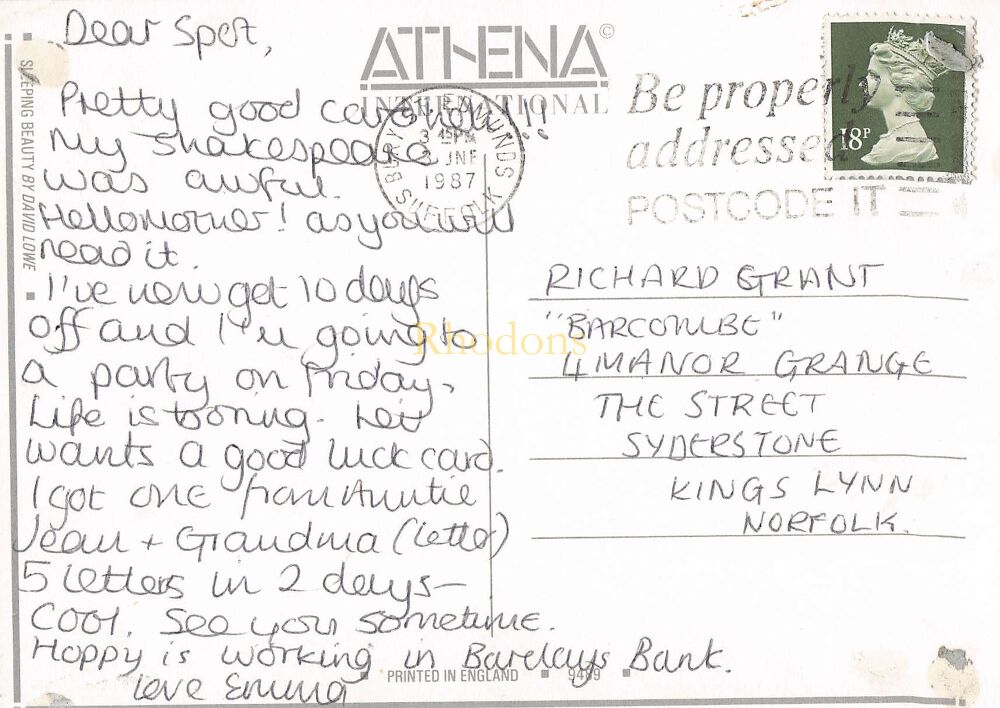 Dear Spot,
Pretty good card huh!!
My Shakespeare
was awful.
Hello mother! as you will
read it.
I've now get 10 days
off and I'm going to
a party on Friday,
Life is boring.
wants a good luck card.
I got one from Auntie
Jean + Grandma (letter)
5 letters in 2 days-
COOl. See you sometime.
Hoppy is working in Barclays Bank.
love Emma
SLEEPING BEAUTY BY DAVID LOWE
ATHENA©
INTERNATIONAL
BURY ST EDMUNDS
3 45PM
JNE
1987
SUFFOLK
Be properly
addressed
POSTCODE IT
18P
RICHARD GRANT
"BARCOMBE"
4 MANOR GRANGE
THE STREET
SYDERSTONE
KINGS LYNN
NORFOLK.
Rhodons
PRINTED IN ENGLAND